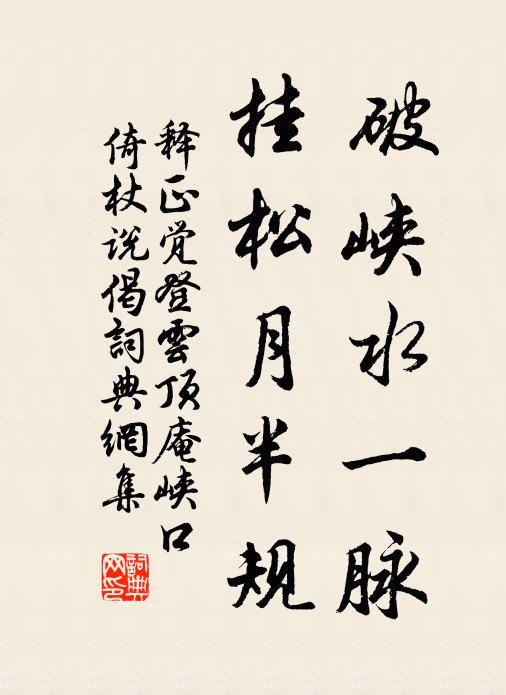 破峡水一脉
挂松月半规
释正覚登雲頂庵峡口
倚杖说偈詞典網集
詞典
网印